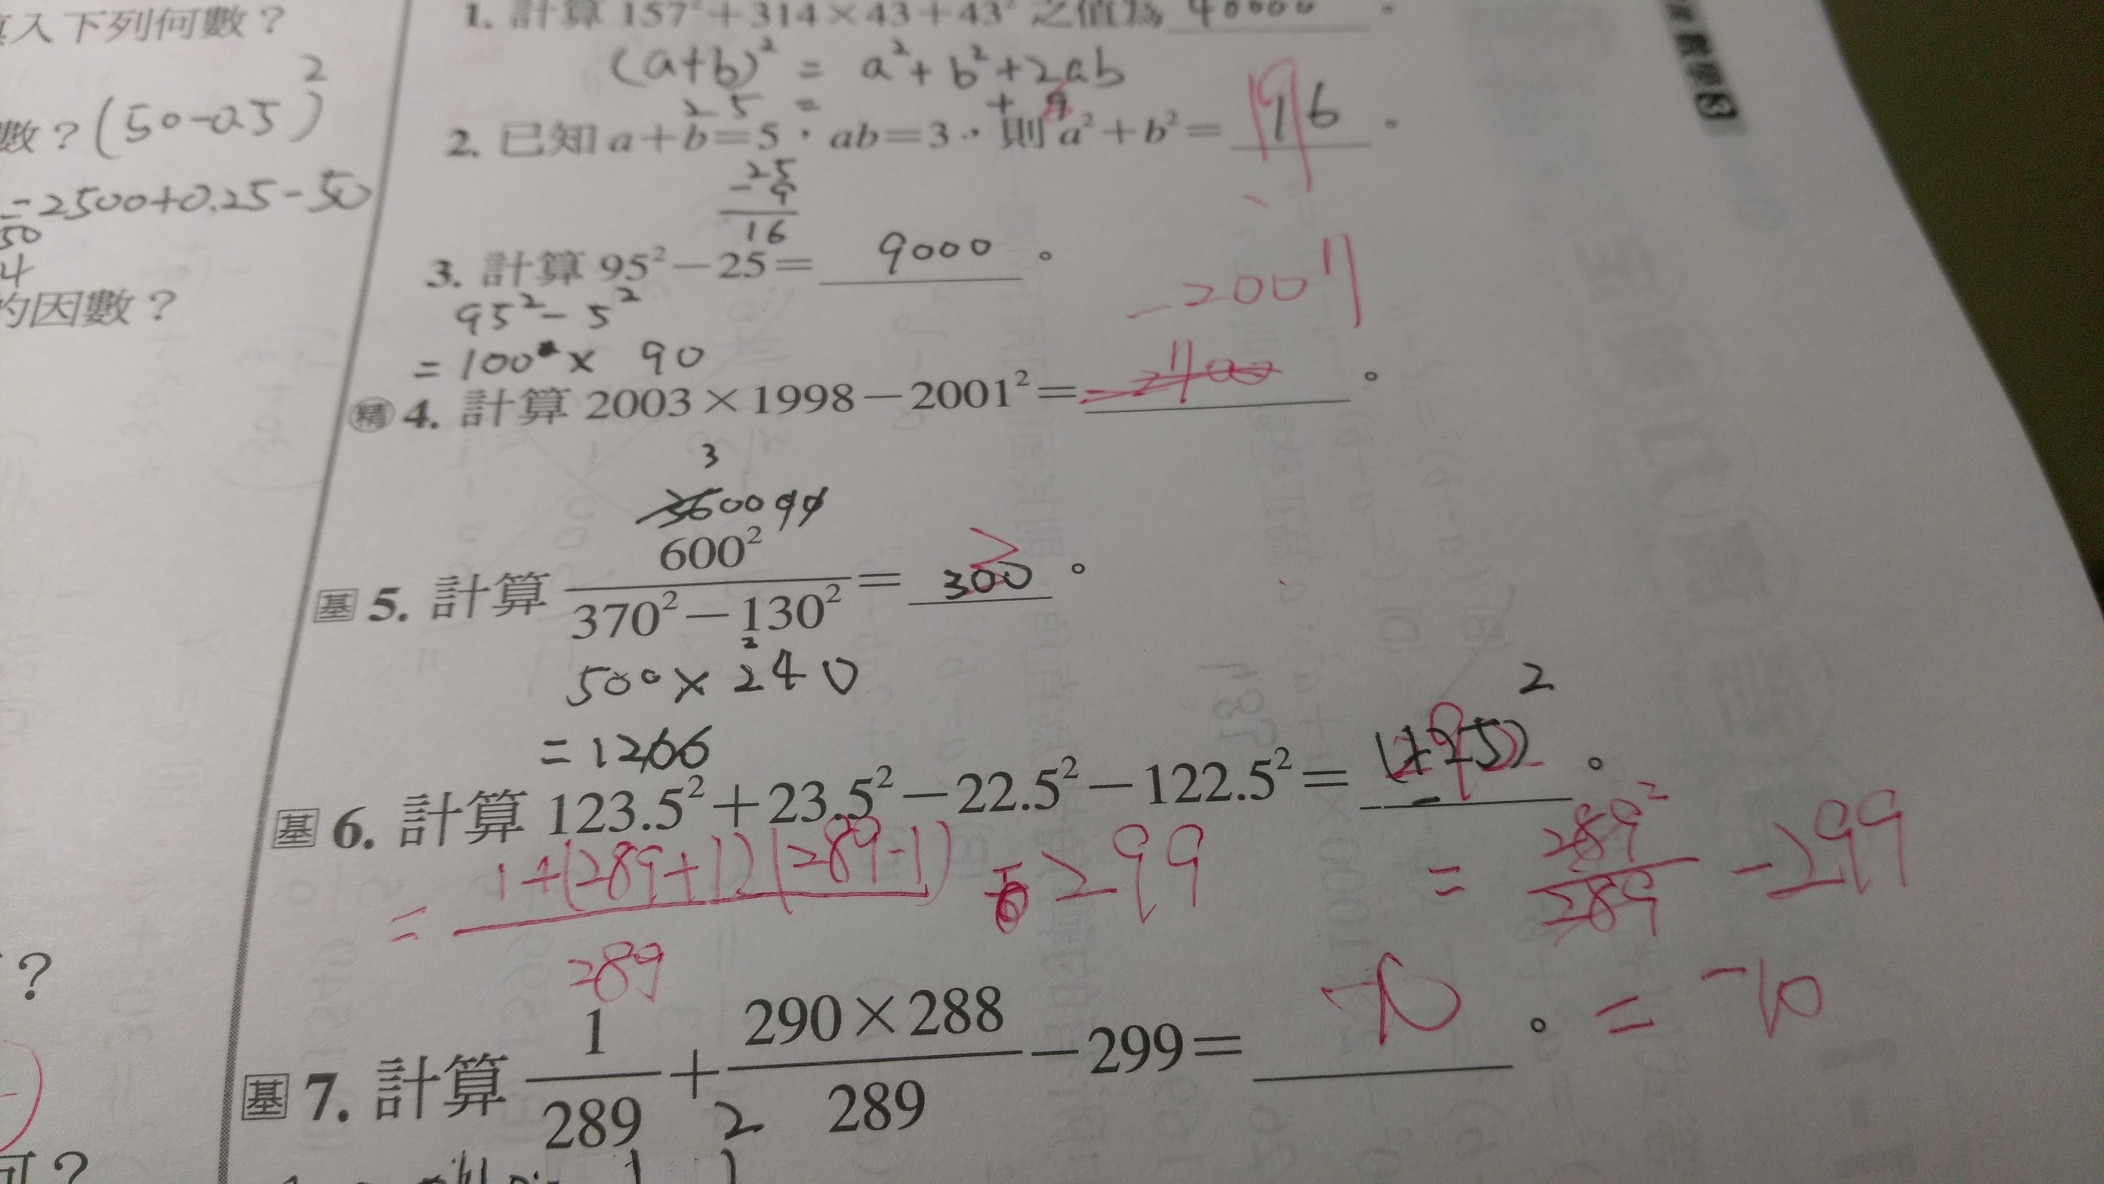 入下列何數？
數？(50-0.5)²
=2500+0.25-50
50
4
的因數？
？
可？
數學3
1. 計算 157²+314×43+43² 之值為 40000 。
(a+b)² = a²+b²+2ab
25 = + 9
2. 已知 a+b=5，ab=3，則 a²+b²= 19 16 。
25
-9
16
3. 計算 95²-25= 9000 。
95²-5²
=100×90
-2001
精 4. 計算 2003×1998-2001²= 。
3
360000
基 5. 計算 600²/(370²-130²) = 300 3 。
500×240
2
=1200
基 6. 計算 123.5²+23.5²-22.5²-122.5²= 292 。
= (1+(289+1)(289-1))/289 - 299 = 289²/289 -299
基 7. 計算 1/289 + (290×288)/289 -299= -10 。 = -10
2